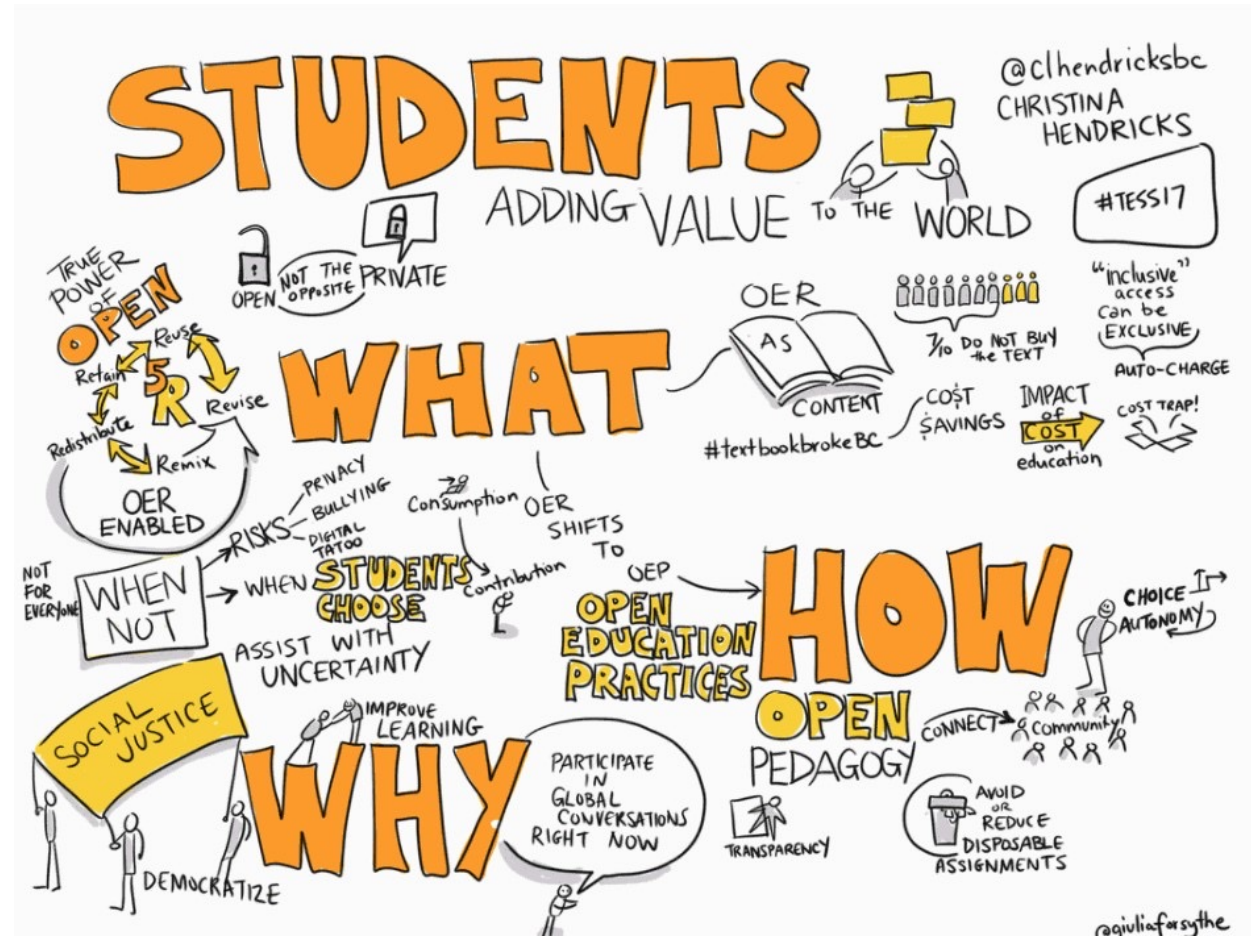 STUDENTS
ADDING VALUE TO THE WORLD
@clhendricksbc
CHRISTINA
HENDRICKS
#TESS17
TRUE
POWER
OF
OPEN
5R
Reuse
Revise
Remix
Redistribute
Retain
OER
ENABLED
OPEN NOT THE OPPOSITE PRIVATE
WHAT
OER
AS
CONTENT
7/10 DO NOT BUY
the TEXT
"inclusive"
access
can be
EXCLUSIVE
AUTO-CHARGE
#textbookbrokeBC
CO$T
$AVINGS
IMPACT
of
COST
on
education
COST TRAP!
NOT
FOR
EVERYONE
WHEN
NOT
RISKS
PRIVACY
BULLYING
DIGITAL
TATOO
WHEN STUDENTS
CHOOSE
ASSIST WITH
UNCERTAINTY
Consumption
Contribution
OER
SHIFTS
TO
OEP
OPEN
EDUCATION
PRACTICES
HOW
CHOICE
AUTONOMY
OPEN
PEDAGOGY
CONNECT
Community
TRANSPARENCY
AVOID
OR
REDUCE
DISPOSABLE
ASSIGNMENTS
SOCIAL
JUSTICE
DEMOCRATIZE
WHY
IMPROVE
LEARNING
PARTICIPATE
IN
GLOBAL
CONVERSATIONS
RIGHT NOW
@giuliaforsythe